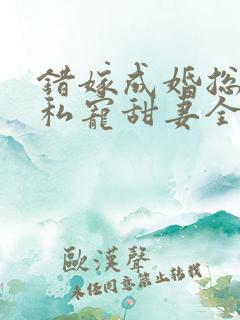 錯嫁成婚總
私寵甜妻全
歐漢聲
未經同意禁止轉載